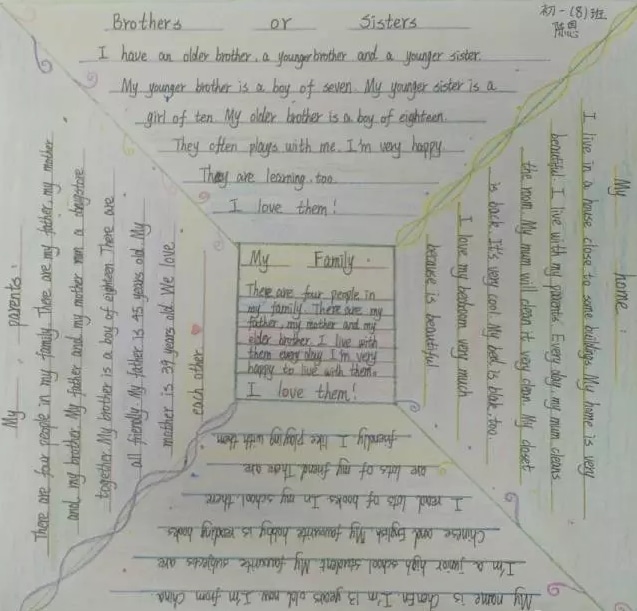 初一(8)班
陈恩
Brothers or Sisters
I have an older brother, a younger brother and a younger sister.
My younger brother is a boy of seven. My younger sister is a
girl of ten. My older brother is a boy of eighteen.
They often plays with me. I'm very happy
They are learning, too.
I love them!
My home:
I live in a house close to some buildings. My home is very
beautiful. I live with my parents. Every day, my mum cleans
the room. My mum will clean it very clean. My closet
is back. It's very cool. My bed is blak, too
I love my bedroom very much
because is beautiful
My Family
There are four people in
my family. There are my
father, my mother and my
older brother. I live with
them every day. I'm very
happy to live with them.
I love them!
My parents:
There are four people in my family. There are my father, my mother
and my brother. My father and my mother run a
together. My brother is a boy of eighteen. There are
all friendly. My father is 45 years old. My
mother is 39 years old. We love
each other
My name is ChenEn. I'm 13 years old now. I'm from China
I'm a junior high school student. My favourite subjects are
Chinese and English. My favourite hobby is reading books
I read lots of books. In my school, there
are lots of my friend. Thear are
friendly. I like playing with them